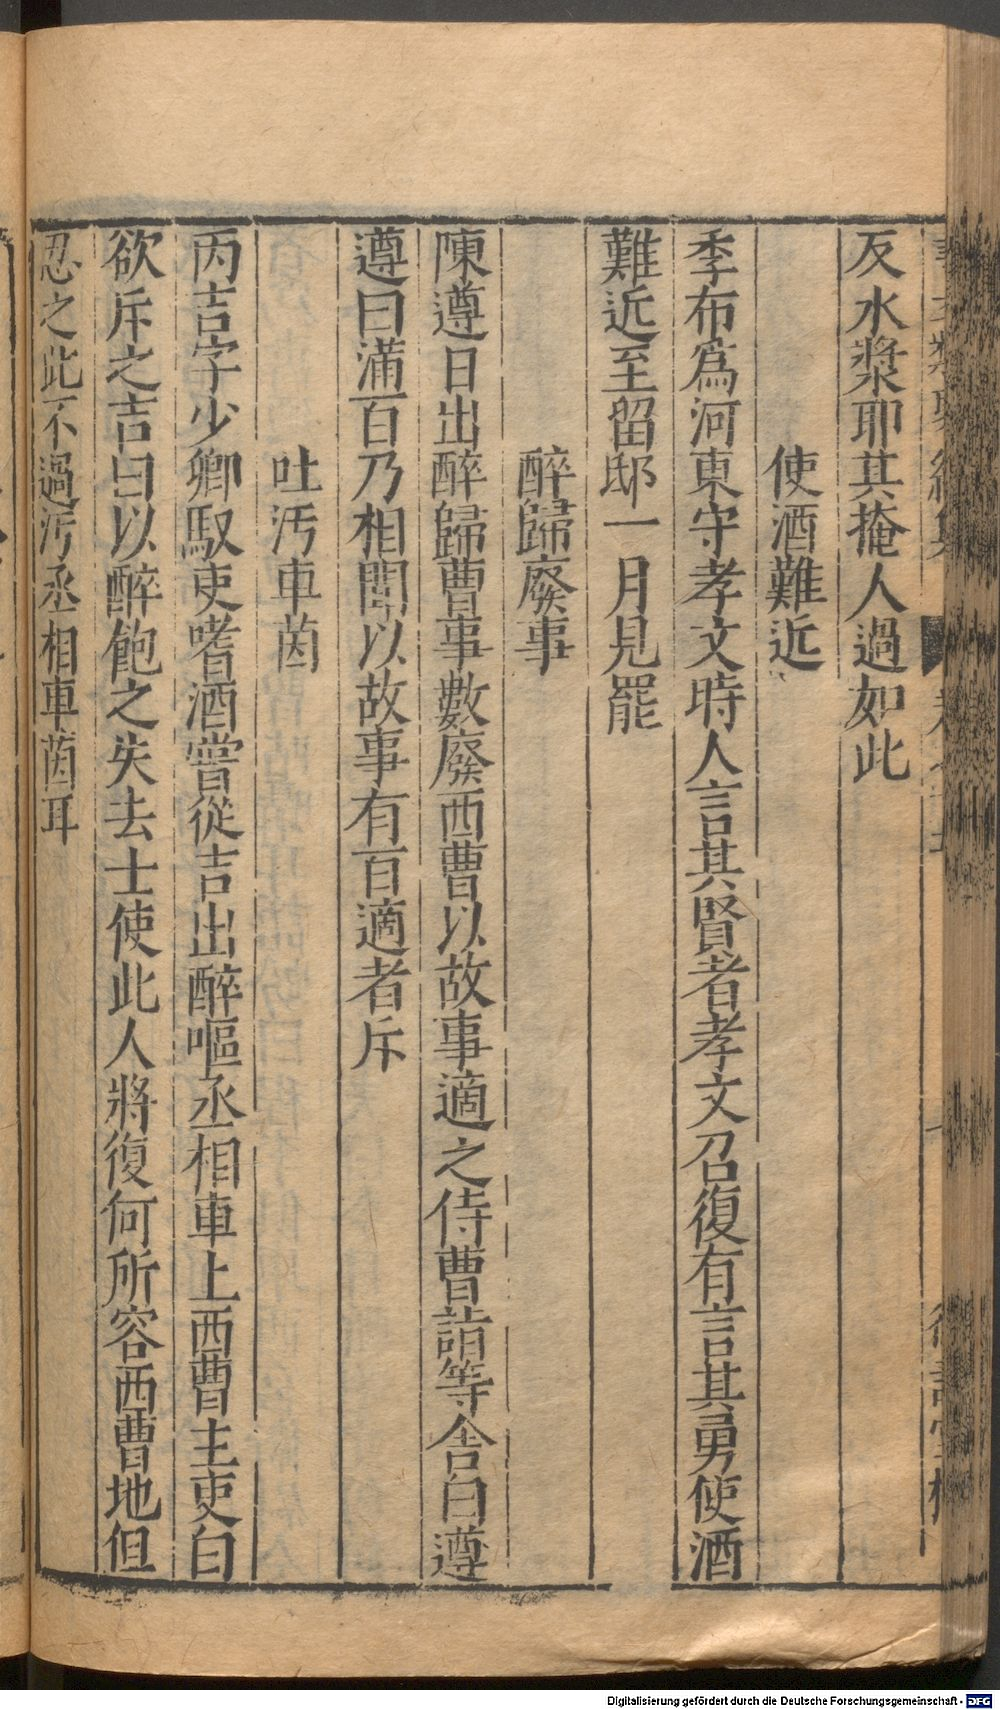 反水漿耶其掩人過如此
使酒難近
季布爲河東守孝文時人言其賢者孝文召復有言其勇使酒
難近至留邸一月見罷
醉歸廢事
陳遵日出醉歸曹事數廢西曹以故事適之侍曹詣等舍白遵
遵曰滿百乃相聞以故事有百適者斥
吐汚車茵
丙吉字少卿馭吏嗜酒嘗從吉出醉嘔丞相車上西曹主吏白
欲斥之吉曰以醉飽之失去士使此人將復何所容西曹地但
忍之此不過汚丞相車茵耳
Digitalisierung gefördert durch die Deutsche Forschungsgemeinschaft - DFG